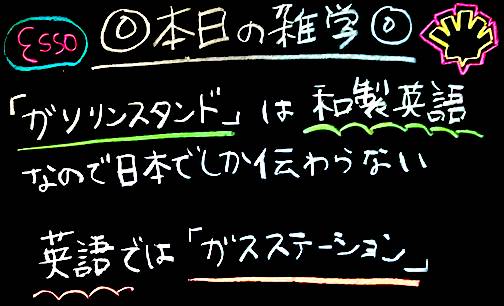 Esso
◎本日の雑学◎
「ガソリンスタンド」は和製英語
なので日本でしか伝わらない
英語では「ガスステーション」